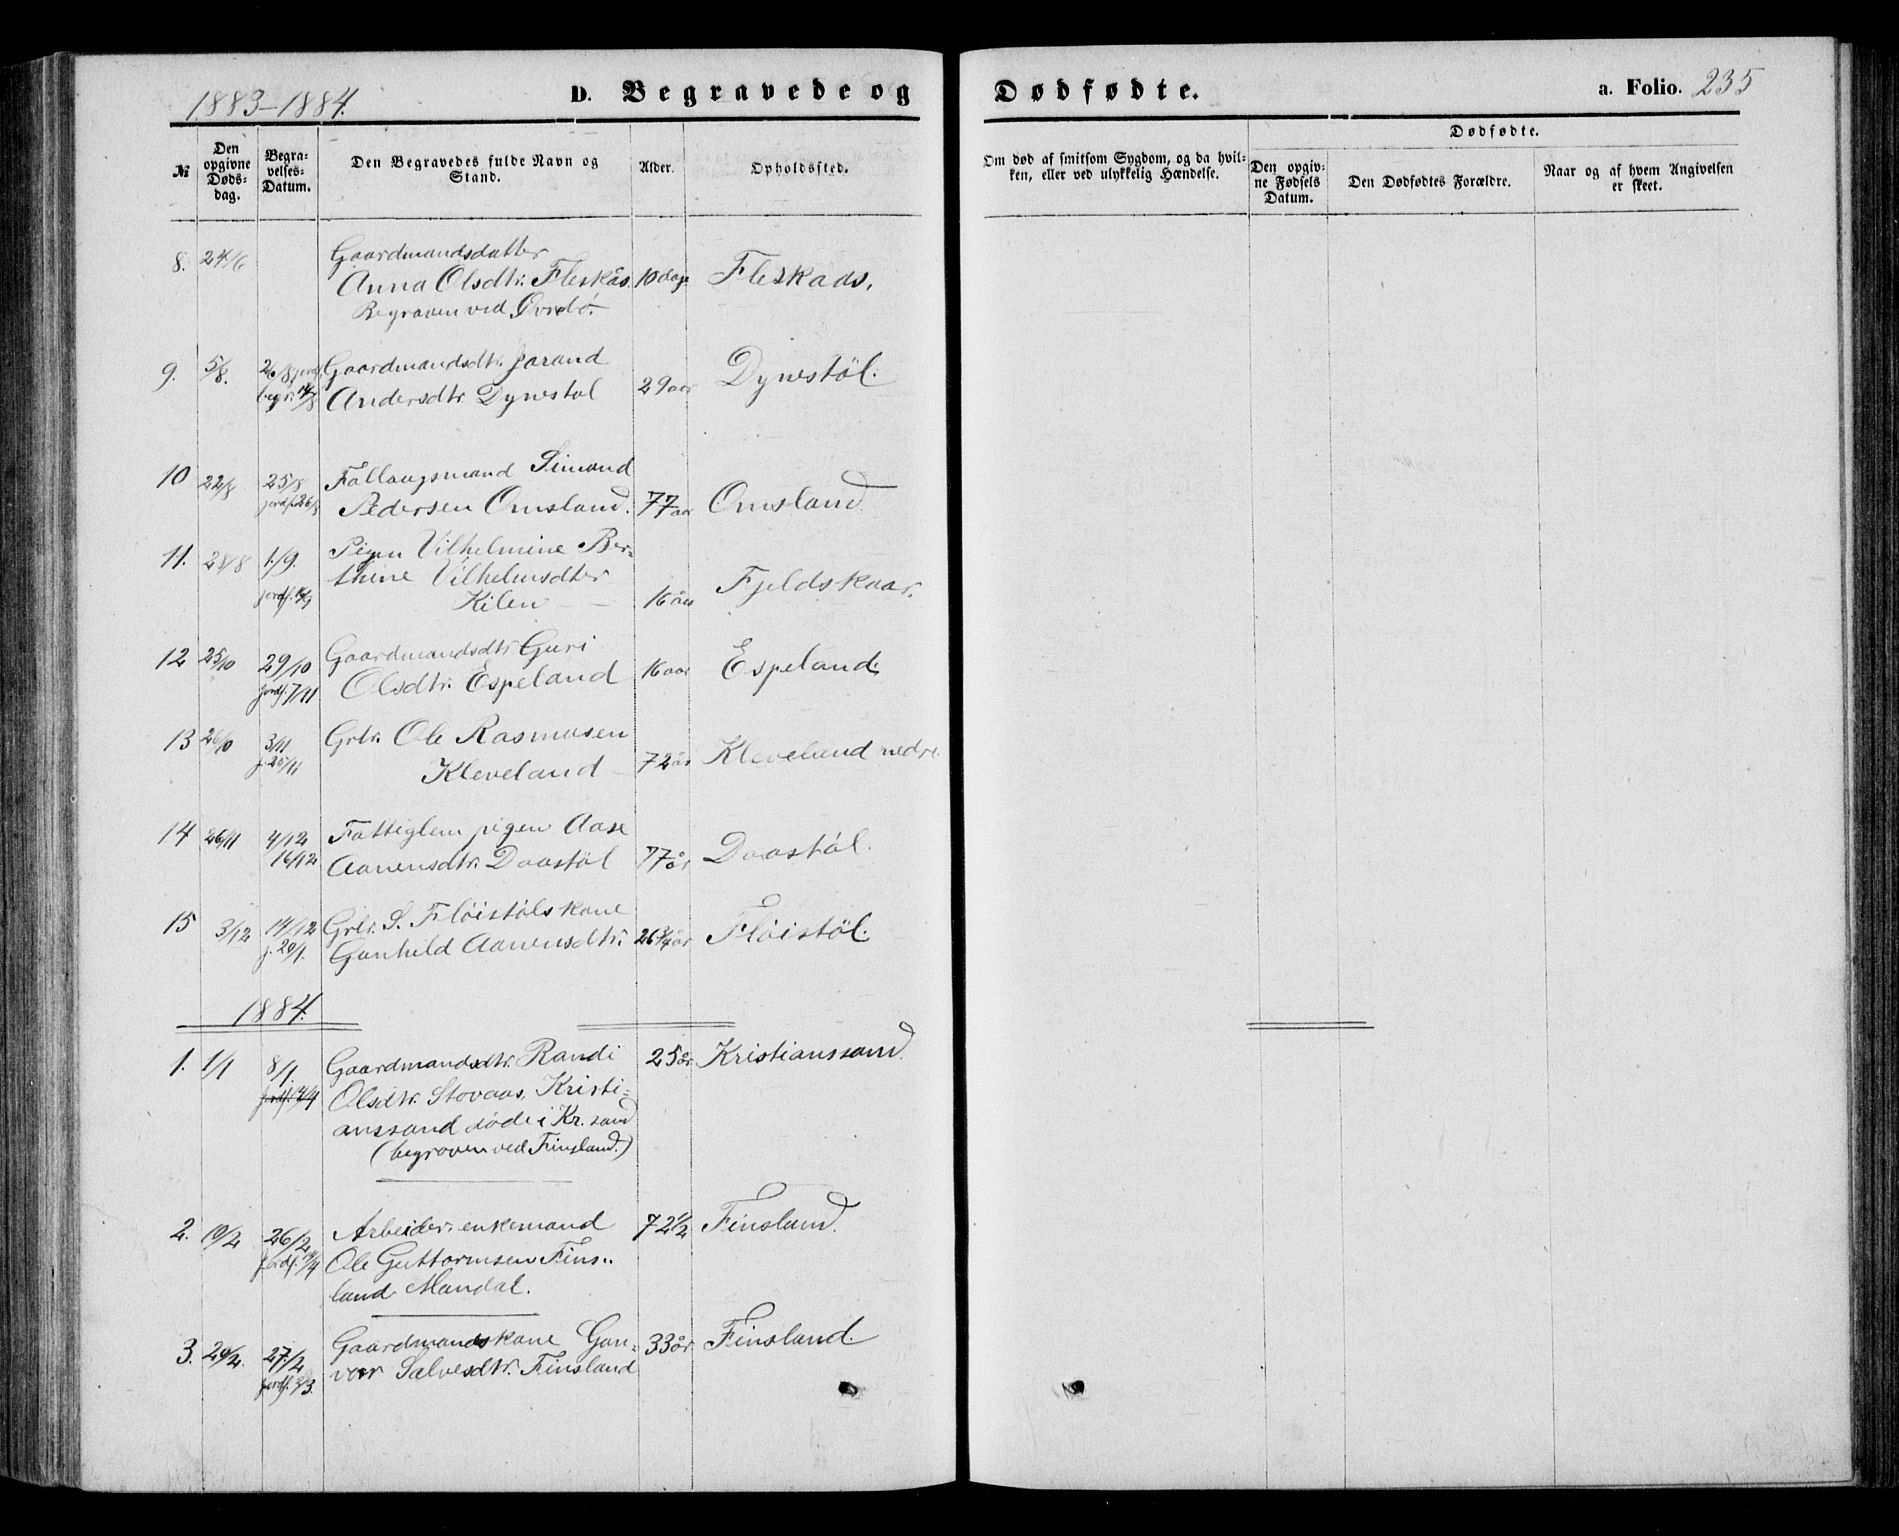 1883-1884.
D. Begravede og Dødfødte.
a. Folio. 235
№
Den opgivne Døds-dag.
Begra-velses-Datum.
Den Begravedes fulde Navn og Stand.
Alder.
Opholdssted.
Om død af smitsom Sygdom, og da hvil-
ken, eller ved ulykkelig Hændelse.
Dødfødte.
Den opgiv-ne Fødsels Datum.
Den Dødfødtes Forældre.
Naar og af hvem Angivelsen er skeet.
8. 24/6 Gaardmandsdatter
Anna Olsdtr. Fleskås. 10 dage Fleskaas.
Begraven ved Øvrebø.
9. 5/8. 26/8 jordf. Gaardmandsdtr. Jorand
begr. 14/8 Andersdtr. Dynestøl 29 aar Dynestöl.
10 22/8 25/8 Follaugsmand Simond
jordf. 26/8 Pedersen Omsland. 77 aar Omsland.
11. 28/8 1/9. Pigen Vilhelmine Ber-
thine Vilhelmsdter
jordf. Kilen 16 år Fjeldskaar.
12 25/10 29/10 Gaardmandsdtr Guri
jordf. 7/11 Olsdtr. Espeland 16 aar Espeland
13 26/10 3/11 Grbr. Ole Rasmusen
j. 25/11 Kleveland 72 år Kleveland nedre.
14 26/11 4/12 Fattiglem pigen Aase
16/12 Aanensdtr. Daastöl 77 år Daastöl.
15 3/12 14/12 Grbr. S. Flöistöls kone
j. 20/1. Gunhild Aanensdtr. 26 3/4 år Flöistöl.
1884.
1. 1/1 8/1. Gaardmandsdtr. Randi 25 år Kristianssand.
jordf. 14/4 Olsdtr. Stovaas. Kristi-
anssand döde i Kr.sand
(begraven ved Finsland.)
2. 19/2 26/2 Arbeider. enkemand 72 1/2 Finsland.
jordf. 14/4 Ole Guttormsen Fins-
land Mandal.
3. 20/2. 27/2 Gaardmandskone Gun- 33 år. Finsland.
jordf. 3/3. vor Salvesdtr. Finsland